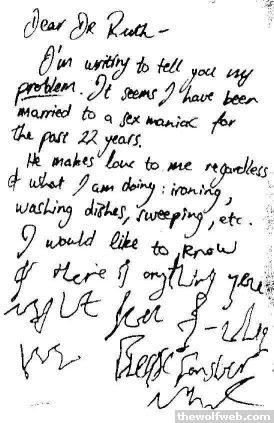 Dear Dr Ruth -
I'm writing to tell you my
problem. It seems I have been
married to a sex maniac for
the past 22 years.
He makes love to me regardless
of what I am doing: ironing,
washing dishes, sweeping, etc.
I would like to know
if there is anything you
thewolfweb.com